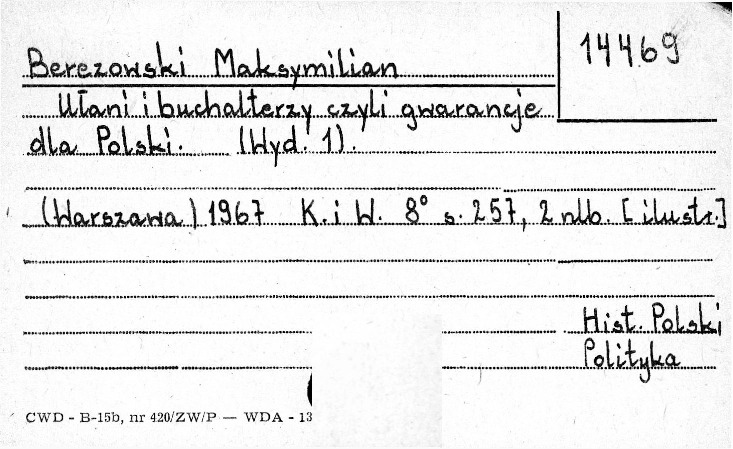 14469
Berezowski Maksymilian
Ułani i buchalterzy czyli gwarancje
dla Polski. (Wyd. 1).
(Warszawa) 1967 K. i W. 8° s. 257, 2 nlb. [ilustr.]
Hist. Polski
Polityka
CWD - B-15b, nr 420/ZW/P — WDA - 13